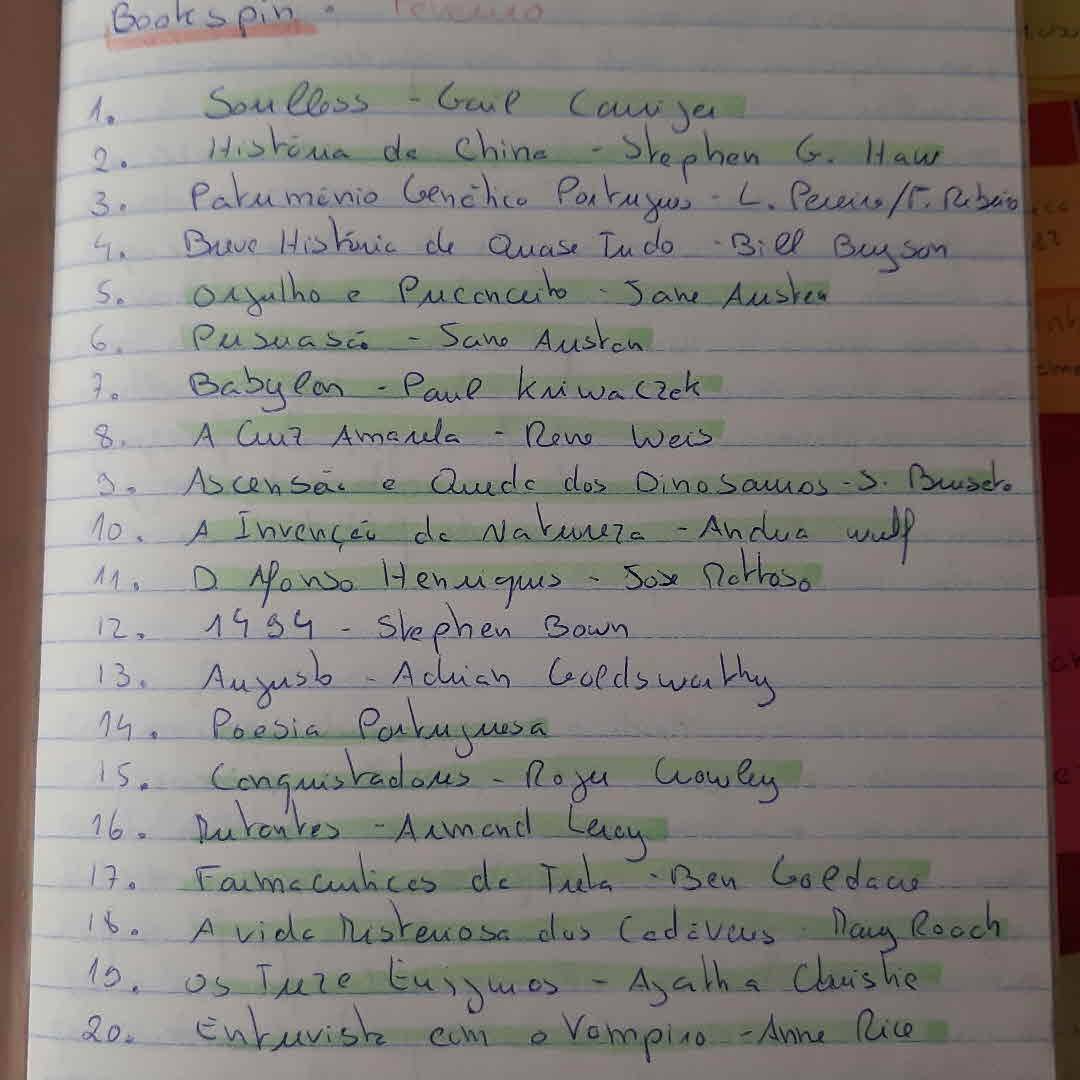 Bookspin : Fevereiro
1. Soulless - Gail Carriger
2. História da China - Stephen G. Haw
3. Património Genético Português - L. Pereira/F. Ribeiro
4. Breve História de Quase Tudo - Bill Bryson
5. Orgulho e Preconceito - Jane Austen
6. Persuasão - Jane Austen
7. Babylon - Paul Kriwaczek
8. A Cruz Amarela - Rene Weis
9. Ascensão e Queda dos Dinosauros - S. Brusatte
10. A Invenção da Natureza - Andrea Wulf
11. D. Afonso Henriques - José Mattoso
12. 1494 - Stephen Bown
13. Augusto - Adrian Goldsworthy
14. Poesia Portuguesa
15. Conquistadores - Roger Crowley
16. Mutantes - Armand Leroy
17. Farmacêuticas da Treta - Ben Goldacre
18. A vida Misteriosa dos Cadáveres - Mary Roach
19. Os Treze Enigmas - Agatha Christie
20. Entrevista com o Vampiro - Anne Rice